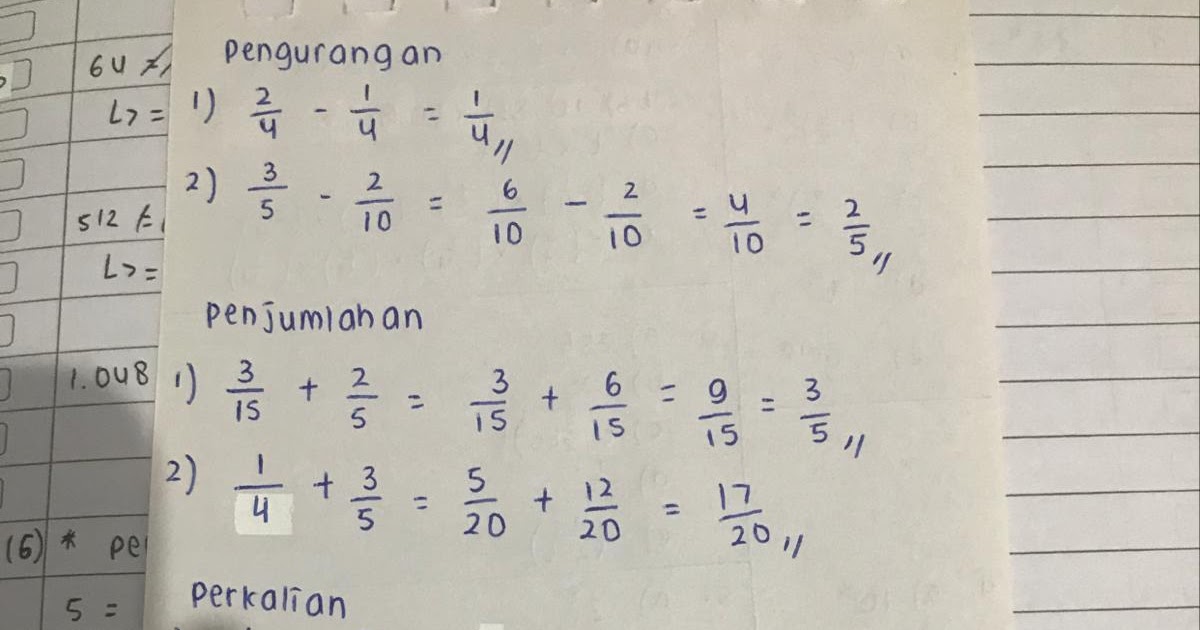 64
L> =
512
L> =
1.048
(6) * pe
5 =
Pengurangan
1) 2/4 - 1/4 = 1/4 //
2) 3/5 - 2/10 = 6/10 - 2/10 = 4/10 = 2/5 //
Penjumlahan
1) 3/15 + 2/5 = 3/15 + 6/15 = 9/15 = 3/5 //
2) 1/4 + 3/5 = 5/20 + 12/20 = 17/20 //
Perkalian